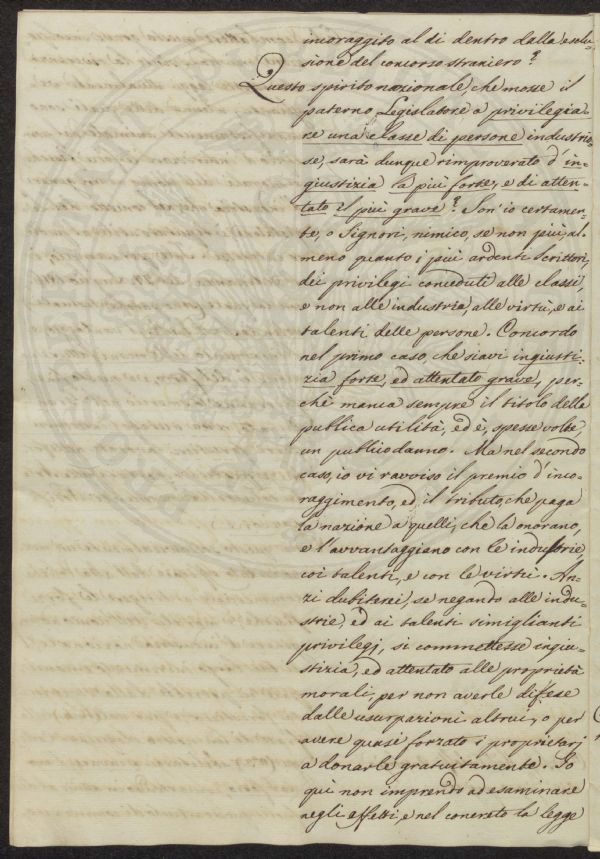 incoraggito al di dentro dalla esclu=
sione del concorso straniero?
Questo spirito nazionale, che mosse il
paterno Legislatore a privilegia=
re una classe di persone industrio=
se, sarà dunque rimproverato d'in=
giustizia la più forte, e di atten=
tato il più grave? Son'io certamen=
te, o Signori, nimico, se non più, al=
meno quanto i più ardenti Scrittori,
dei privilegi conceduti alle classi,
e non alle industrie, alle virtù, e ai
talenti delle persone. Concordo
nel primo caso, che siavi ingiusti=
zia forte, ed attentato grave, per=
chè manca sempre il titolo della
publica utilità, ed è, spesse volte,
un publico danno. Ma nel secondo
caso, io vi ravviso il premio d'inco=
raggimento, ed il tributo, che paga
la nazione a quelli, che la onorano,
e l'avvantaggiano con le industrie,
coi talenti, e con le virtù. An=
zi dubiterei, se negando alle indu=
strie, ed ai talenti simiglianti
privilegj, si commettesse ingiu=
stizia, ed attentato alle proprietà
morali, per non averle difese
dalle usurpazioni altrui, o per
avere quasi forzato i proprietarj
a donarle gratuitamente. Io
quì non imprendo ad esaminare
negli effetti, e nel concreto la legge